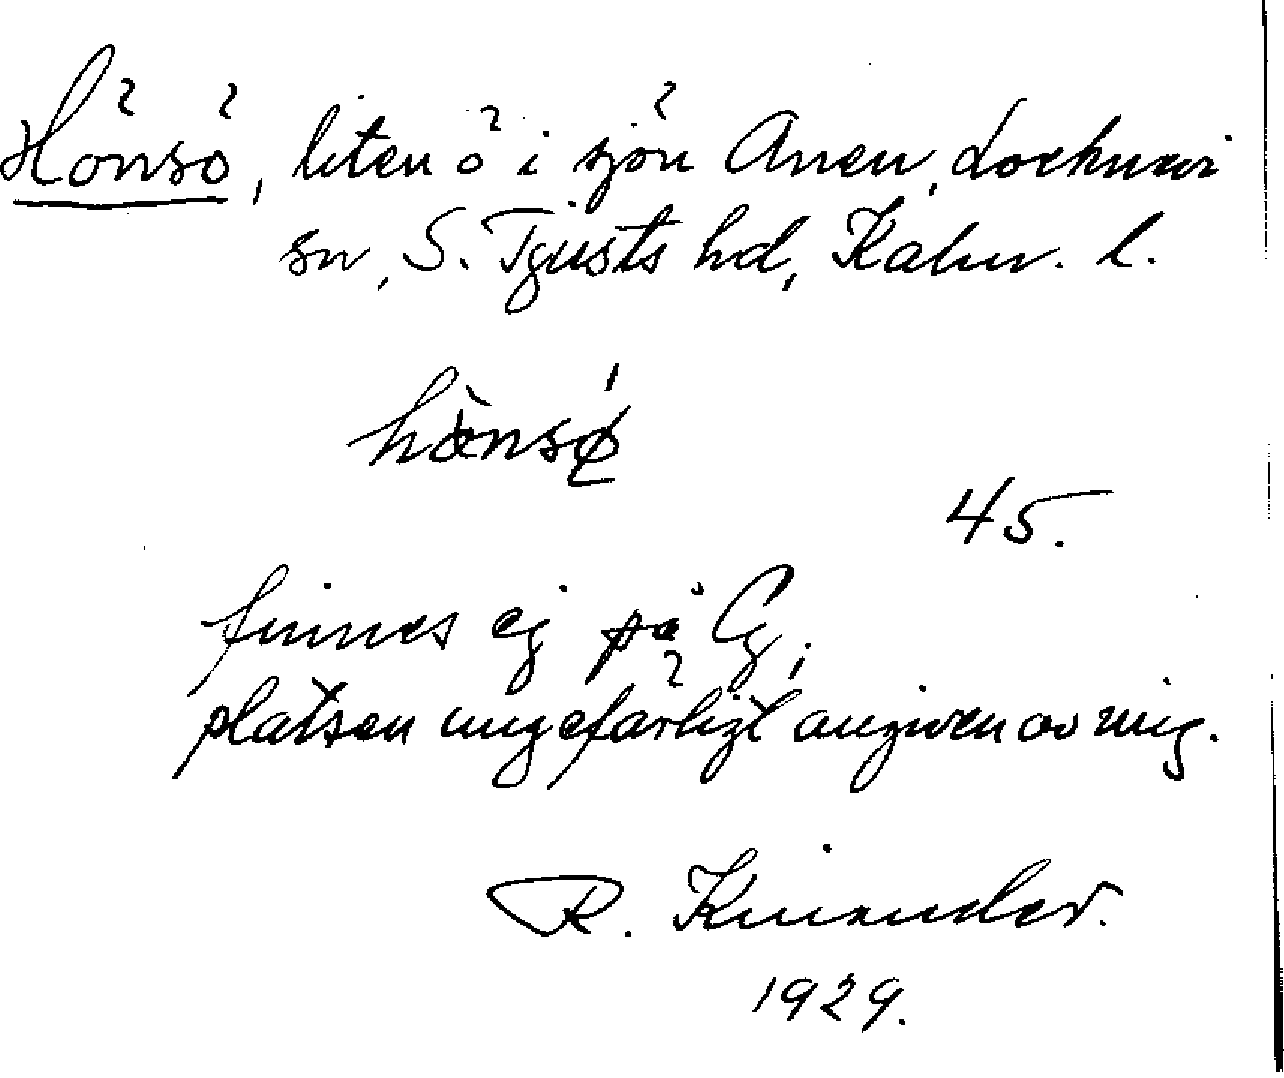 Hönsö, liten ö i sjön Anen, Locknevi
sn, S. Tjusts hd, Kalm. l.
hö̀nsǿ
45.
finnes ej på Cg,
platsen ungefärligt angiven av mig.
R. Kinander.
1929.